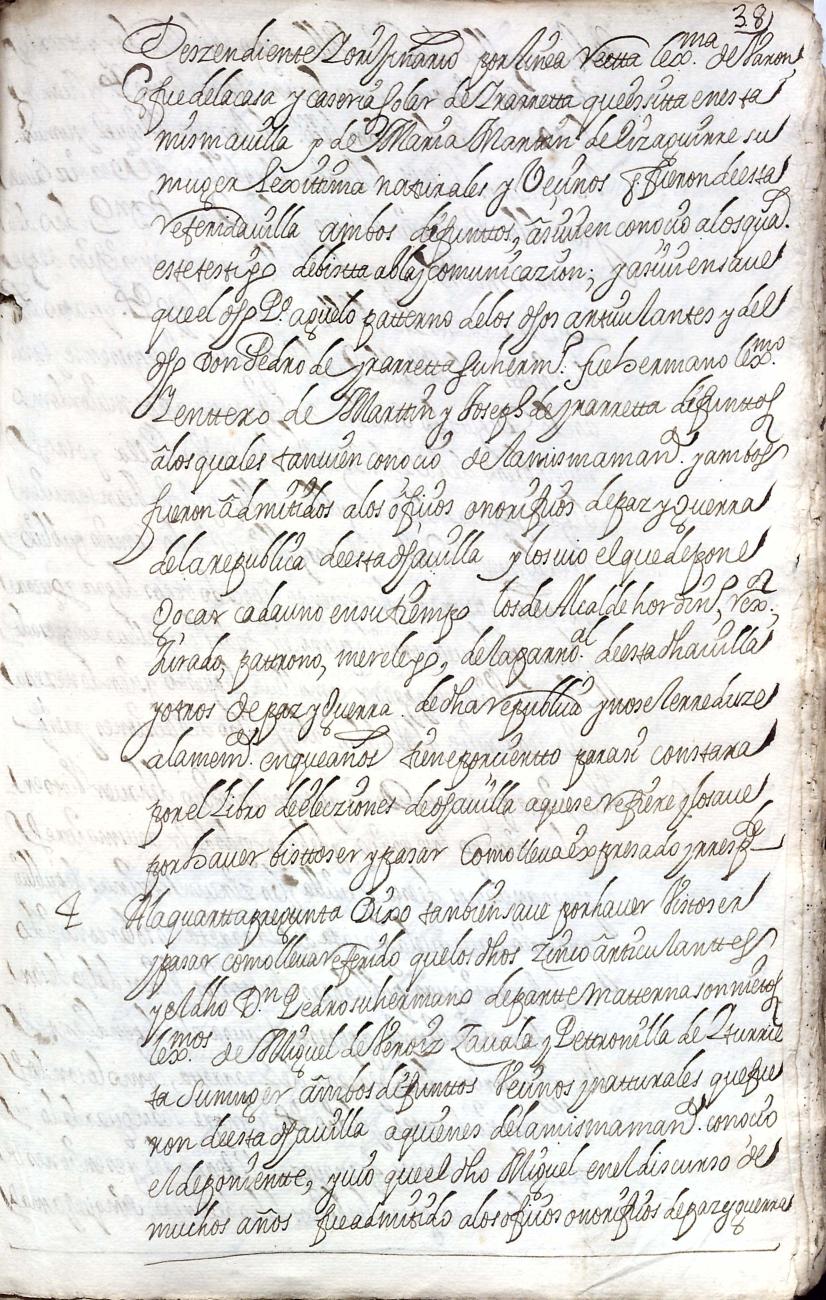 38
Deszendiente Y orijinario por linea rectta lexma. de Varon
q fue de la casa y caseria solar de Yrarretta que es sitta en esta
misma villa y de Maria Marttin de Eizaguirre su
muger lexittima naturales y vecinos q fueron de esta
referida villa ambos difunttos, â si vien conocio a los qua.
este testigo de bistta abla y comunicazion; y asi vien save
que el dho Po. aguelo patterno de los dhos articulantes y del
dho Don Pedro de Yrarretta su hermo. fue hermano lexmo.
Y enttero de Marttin y Joseph de Yrarretta difunttos
â los quales tanvien conocio de la misma man. y ambos
fueron âdmitidos a los ôficios onorificos de paz y Guerra
de la republica de esta dha villa y los vio el que depone
Gocar cada uno en su tiempo los de Alcalde hordino, rexor,
Jurado, pattrono, merelego, de la parroal. de esta dha villa
y otros de paz y Guerra de dha republica y no se le rreduze
a la memª. en que años tiene por ciertto para si constara
por el Libro de elecziones de dha villa a que se refiere y lo save
por haver bistto ser y pasar Como lleva expresado y rrespde
4 A la quartta pregunta Dixo tambien save por haver Visto ser
y pasar como lleva referido que los dhos zinco ârticulanttes
y el dho Dn. Pedro su hermano de partte Matterna son nietos
lexmos. de Miguel de Veroiz Zavala y Pettronilla de Yturrie
ta su muger âmbos difunttos Vecinos y natturales que fue
ron de esta dha villa a quienes de la misma man. conocio
el deponientte, y vio que el dho Miguel en el discurso de
muchos años fue admitido a los oficios onorificos de paz y guerra